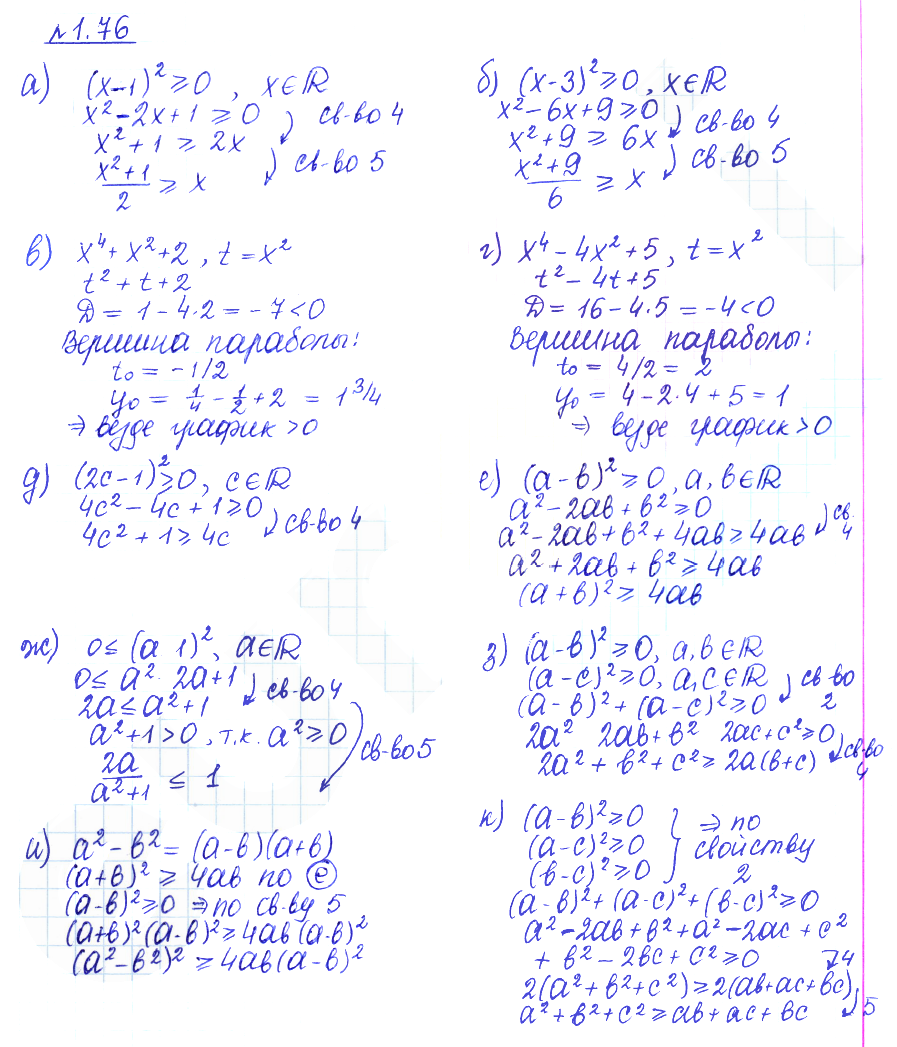 №1.76
а) (x-1)² ≥ 0 , x∈ℝ
x² - 2x + 1 ≥ 0 св-во 4
x² + 1 ≥ 2x
св-во 5
(x²+1)/2 ≥ x
б) (x-3)² ≥ 0 , x∈ℝ
x² - 6x + 9 ≥ 0
св-во 4
x² + 9 ≥ 6x
св-во 5
(x²+9)/6 ≥ x
в) x⁴ + x² + 2 , t = x²
t² + t + 2
Д = 1 - 4·2 = -7 < 0
Вершина параболы:
t₀ = -1/2
y₀ = 1/4 - 1/2 + 2 = 1 3/4
⇒ везде график > 0
г) x⁴ - 4x² + 5 , t = x²
t² - 4t + 5
Д = 16 - 4·5 = -4 < 0
Вершина параболы:
t₀ = 4/2 = 2
y₀ = 4 - 2·4 + 5 = 1
⇒ везде график > 0
д) (2c-1)² ≥ 0 , c∈ℝ
4c² - 4c + 1 ≥ 0
св-во 4
4c² + 1 ≥ 4c
е) (a-в)² ≥ 0 , a, в∈ℝ
a² - 2aв + в² ≥ 0
св. 4
a² - 2aв + в² + 4aв ≥ 4aв
a² + 2aв + в² ≥ 4aв
(a+в)² ≥ 4aв
ж) 0 ≤ (a 1)² , a∈ℝ
0 ≤ a² 2a + 1
св-во 4
2a ≤ a² + 1
a² + 1 > 0 , т.к. a² ≥ 0
св-во 5
2a/(a²+1) ≤ 1
з) (a-в)² ≥ 0, a, в∈ℝ
(a-c)² ≥ 0, a, c∈ℝ св-во 2
(a-в)² + (a-c)² ≥ 0
2a² 2aв + в² 2ac + c² ≥ 0
св-во 4
2a² + в² + c² ≥ 2a(в+c)
и) a² - в² = (a-в)(a+в)
(a+в)² ≥ 4aв по е
(a-в)² ≥ 0 ⇒ по св-ву 5
(a+в)²(a-в)² ≥ 4aв(a-в)²
(a²-в²)² ≥ 4aв(a-в)²
к) (a-в)² ≥ 0
(a-c)² ≥ 0
(в-c)² ≥ 0
} ⇒ по
свойству
2
(a-в)² + (a-c)² + (в-c)² ≥ 0
a² - 2aв + в² + a² - 2ac + c²
+ в² - 2вc + c² ≥ 0 4
2(a²+в²+c²) ≥ 2(aв+ac+вc)
5
a² + в² + c² ≥ aв + ac + вc